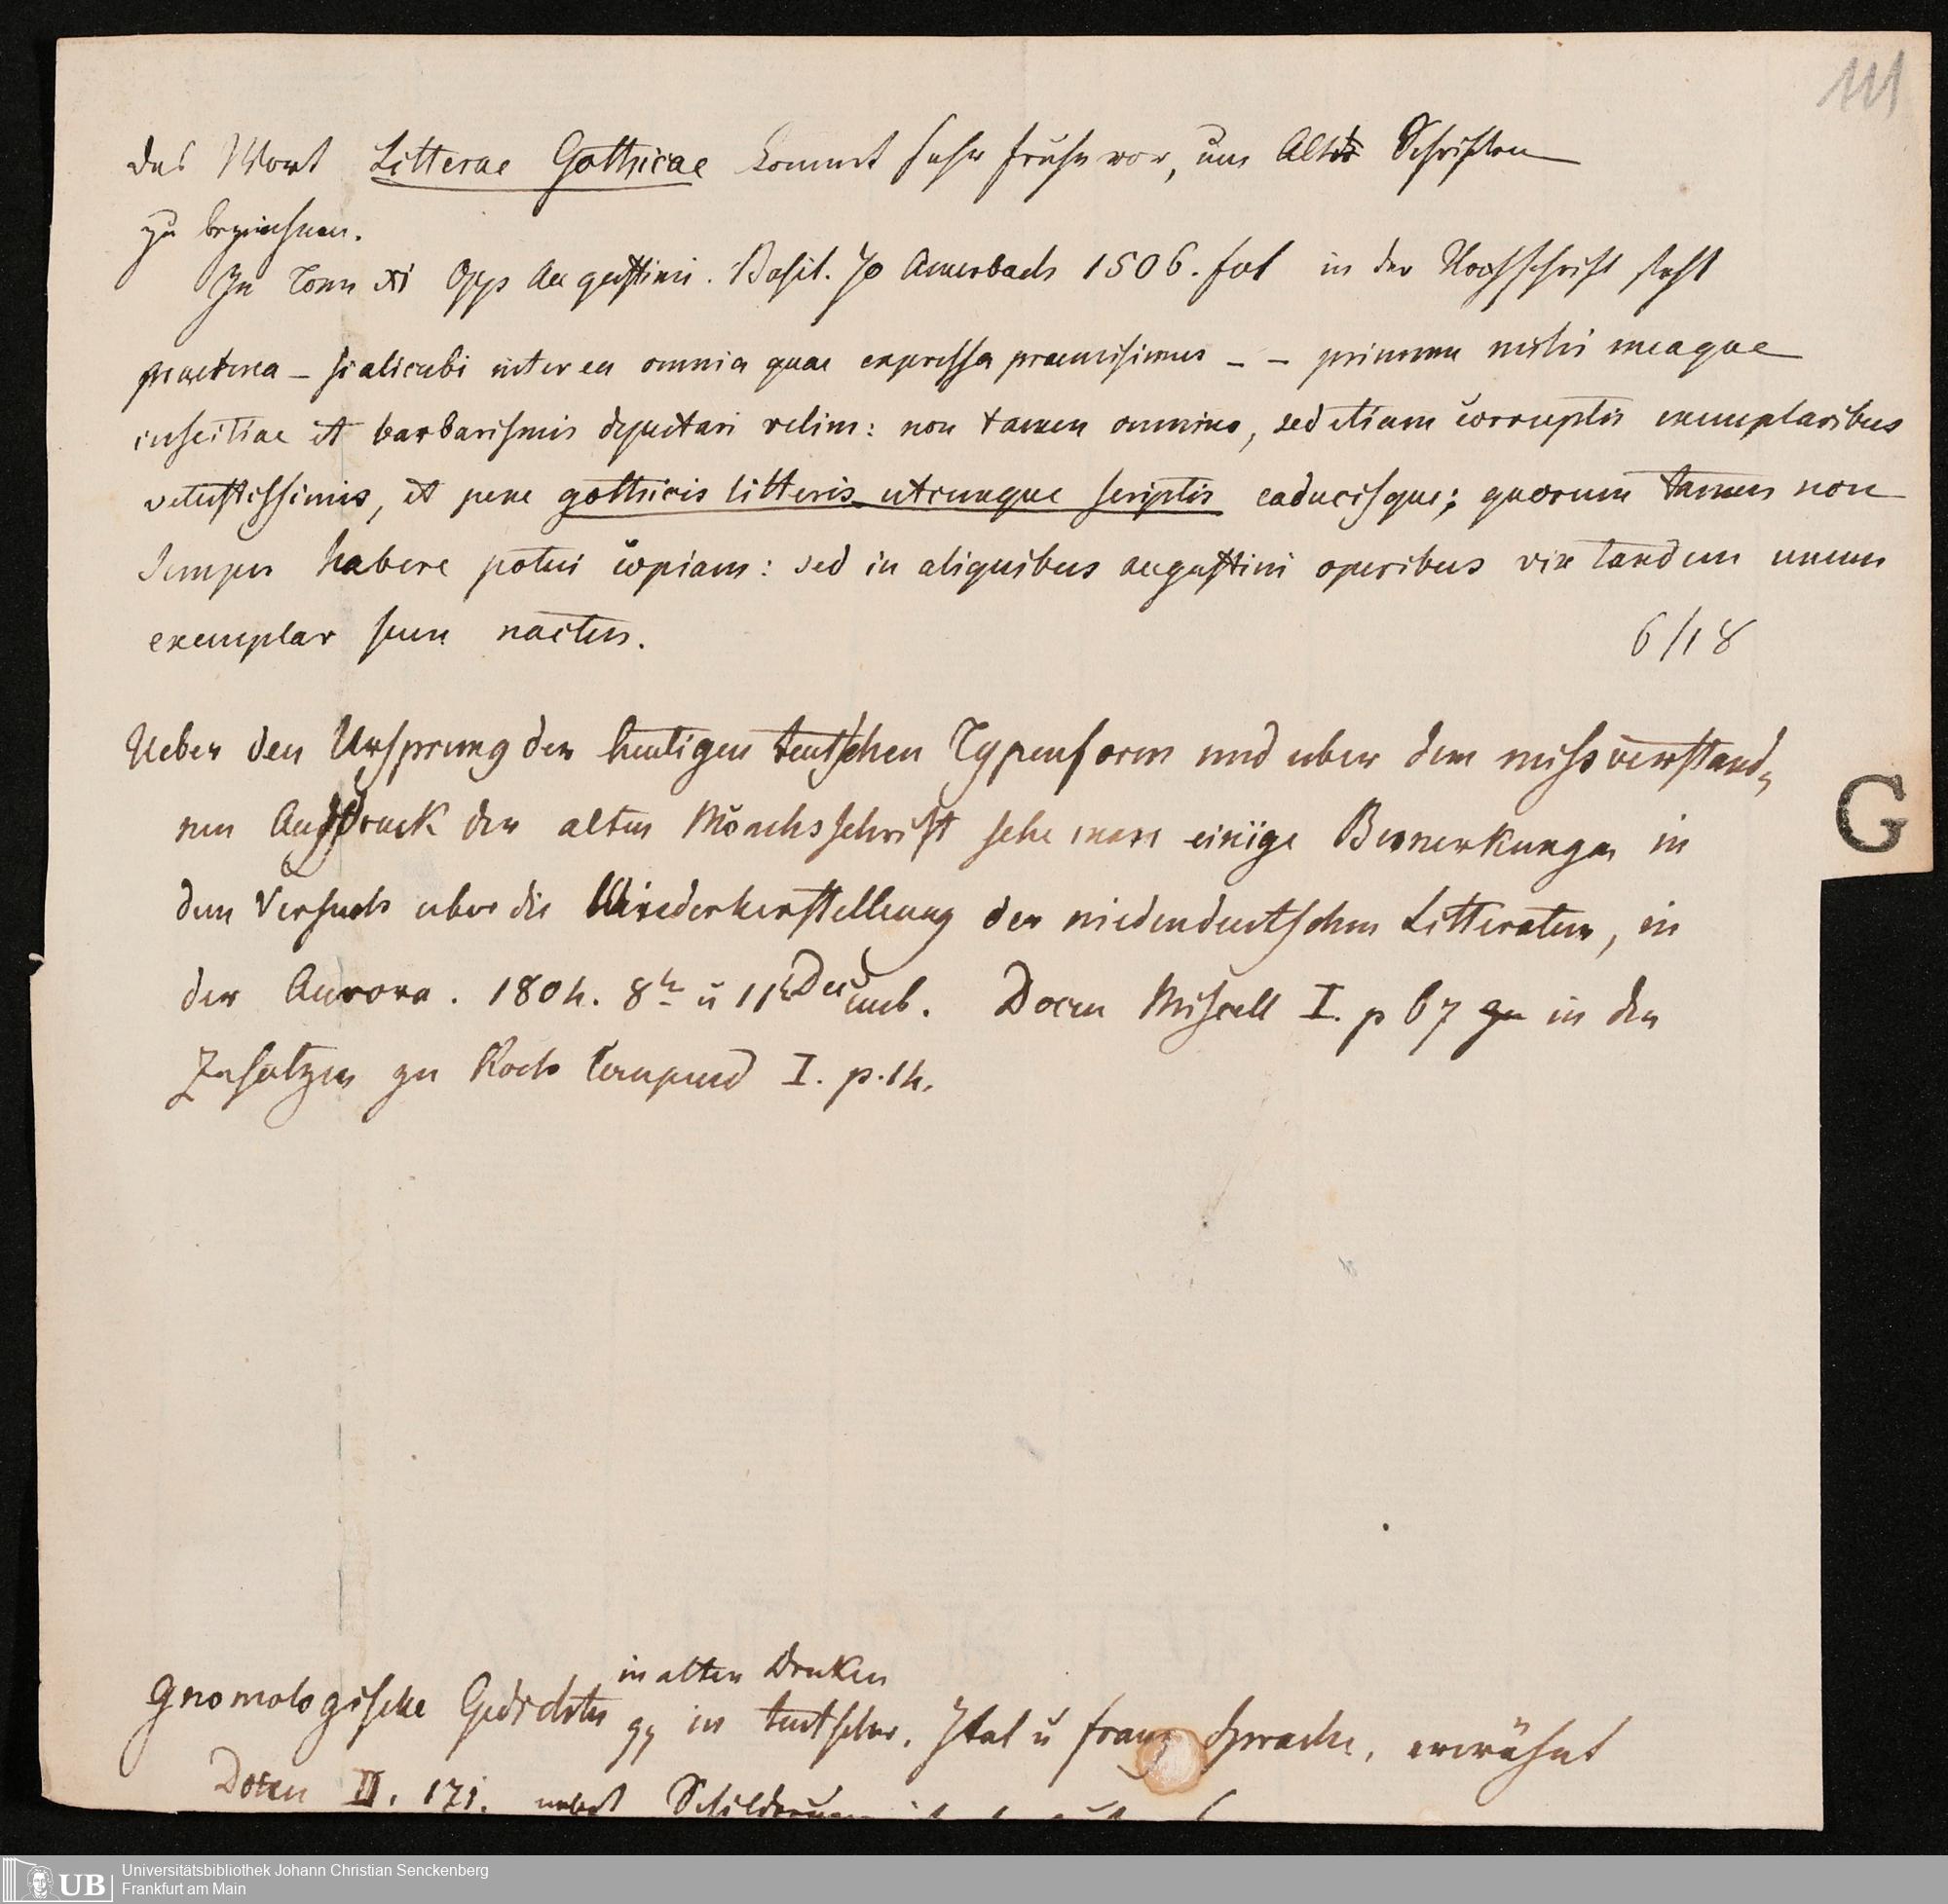 111
Das Wort Litterae Gothicae kommt sehr fruh vor, um Alte Schriften
zu bezeichnen.
In Tom XI Opps Augustini. Basil. Jo Amerbach 1506. fol in der Nachschrift steht
praeterea – si alicubi inter ea omnia quae expressa praemisimus – – primum mihi meaque
inscitiae et barbarismis deputari velim: non tamen omnino, sed etiam corruptis exemplaribus
vetustissimis, et pene gothicis litteris utcunque scriptis caducisque; quorum tamen non
semper habere potui copiam: sed in aliquibus augustini operibus vix tandem unum
exemplar sum nactus. 6/18
Ueber den Ursprung der heutigen teutschen Typenform und uber dem missverstand„
nen Ausdruck der alten Mönchsschrift sehe man einige Bemerkungen in
dem Versuch uber die Wiederherstellung der niederdeutschen Litteratur, in
der Aurora. 1804. 8t u 11t Decemb. Docen Miscell I. p 67 in den
Zusatzen zu Kochs Compend I. p. 14.
G
in alten Druken
Gnomologische Gedichte in teutscher, Ital u franz Sprache, erwähnt
Docen II. 171. nebst
UB Universitätsbibliothek Johann Christian Senckenberg
Frankfurt am Main